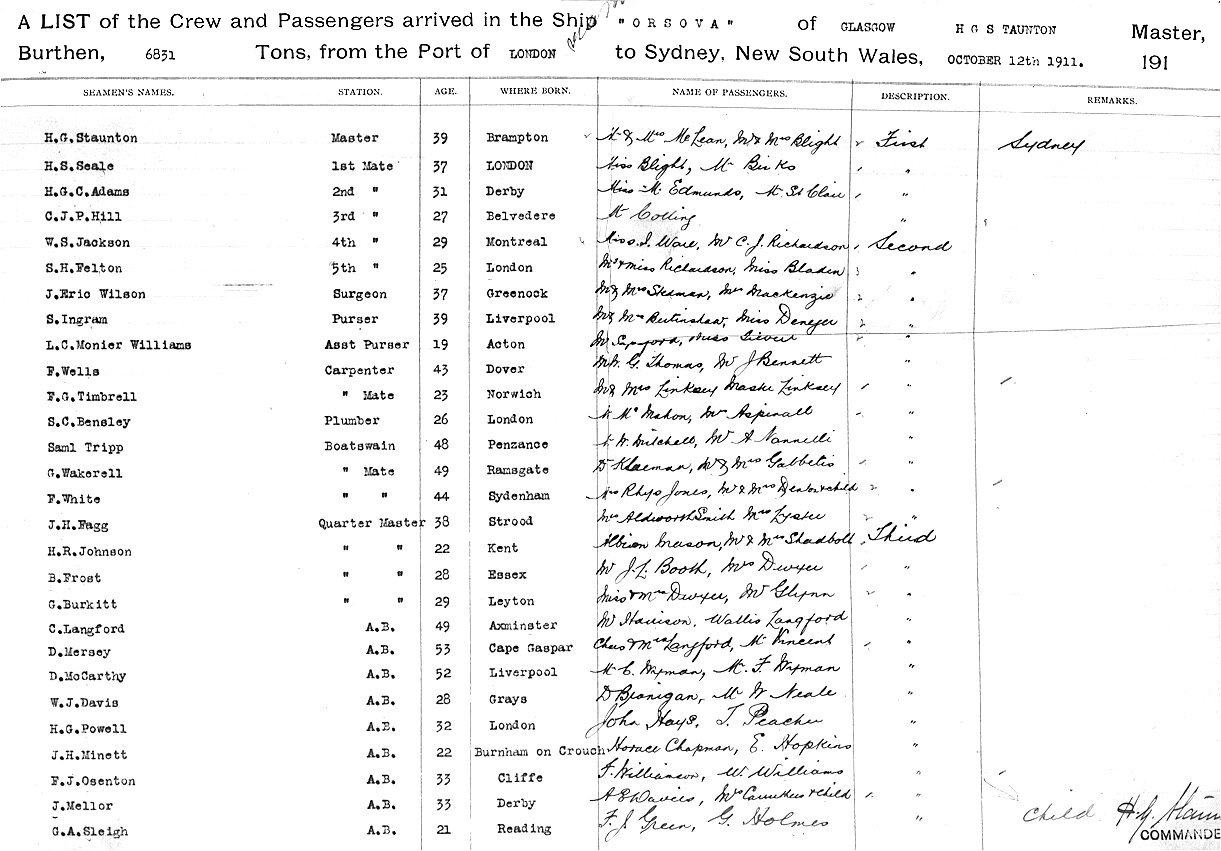 A LIST of the Crew and Passengers arrived in the Ship "ORSOVA" of GLASGOW H G S TAUNTON Master,
Burthen, 6831 Tons, from the Port of LONDON to Sydney, New South Wales, OCTOBER 12th 1911. 191
SEAMEN'S NAMES. STATION. AGE. WHERE BORN. NAME OF PASSENGERS. DESCRIPTION. REMARKS.
H.G.Staunton Master 39 Brampton & Mrs McLean, Mr & Mrs Blight First Sydney
H.S.Seale 1st Mate 37 LONDON Miss Blight, Mr Birks "
H.G.C.Adams 2nd " 31 Derby Miss M. Edmunds, Mr St Clair "
C.J.P.Hill 3rd " 27 Belvedere Mr "
W.S.Jackson 4th " 29 Montreal Miss J. Ware, Mr C. J. Richardson, Second
S.H.Felton 5th " 25 London Mrs & Miss Richardson, Miss Bladen "
J.Eric Wilson Surgeon 37 Greenock Mr & Mrs Mrs Mackenzie "
S.Ingram Purser 39 Liverpool Mr & Mrs Miss "
L.C.Monier Williams Asst Purser 19 Acton Mr Miss "
F.Wells Carpenter 43 Dover G. Thomas, Mr J Bennett "
F.G.Timbrell " Mate 23 Norwich Mr & Mrs Linksey Linksey "
S.C.Bensley Plumber 26 London McMahon, Aspinall "
Saml Tripp Boatswain 48 Penzance W. Mitchell, Mr A Nannelli "
G.Wakerell " Mate 49 Ramsgate Mr & Mrs "
F.White " " 44 Sydenham Mrs Rhys Jones, Mr & Mrs & child "
J.H.Fagg Quarter Master 38 Strood Mrs Aldworth Smith Mrs "
H.R.Johnson " " 22 Kent Albion Mason, Mr & Mrs Shadbolt Third
B.Frost " " 28 Essex Mr J. L. Booth, Mrs Dwyer "
G.Burkitt " " 29 Leyton Miss & Mrs Dwyer, Mr Glynn "
C.Langford A.B. 49 Axminster Mr Harrison, Wallis Langford "
D.Mersey A.B. 53 Cape Gaspar Chas & Mrs Langford, Mr Vincent "
D.McCarthy A.B. 52 Liverpool Mr C. Wyman, Mr. F Wyman "
W.J.Davis A.B. 28 Grays D Branigan, Mr W Neale "
H.G.Powell A.B. 32 London John Hays, T. "
J.H.Minett A.B. 22 Burnham on Crouch Horace Chapman, E. Hopkins "
F.J.Osenton A.B. 33 Cliffe F. Williamson, W. Williams "
J.Mellor A.B. 33 Derby A E Davies, Mrs Carruthers & child " child H.G.
G.A.Sleigh A.B. 21 Reading F. J. Green, G. Holmes " COMMANDE